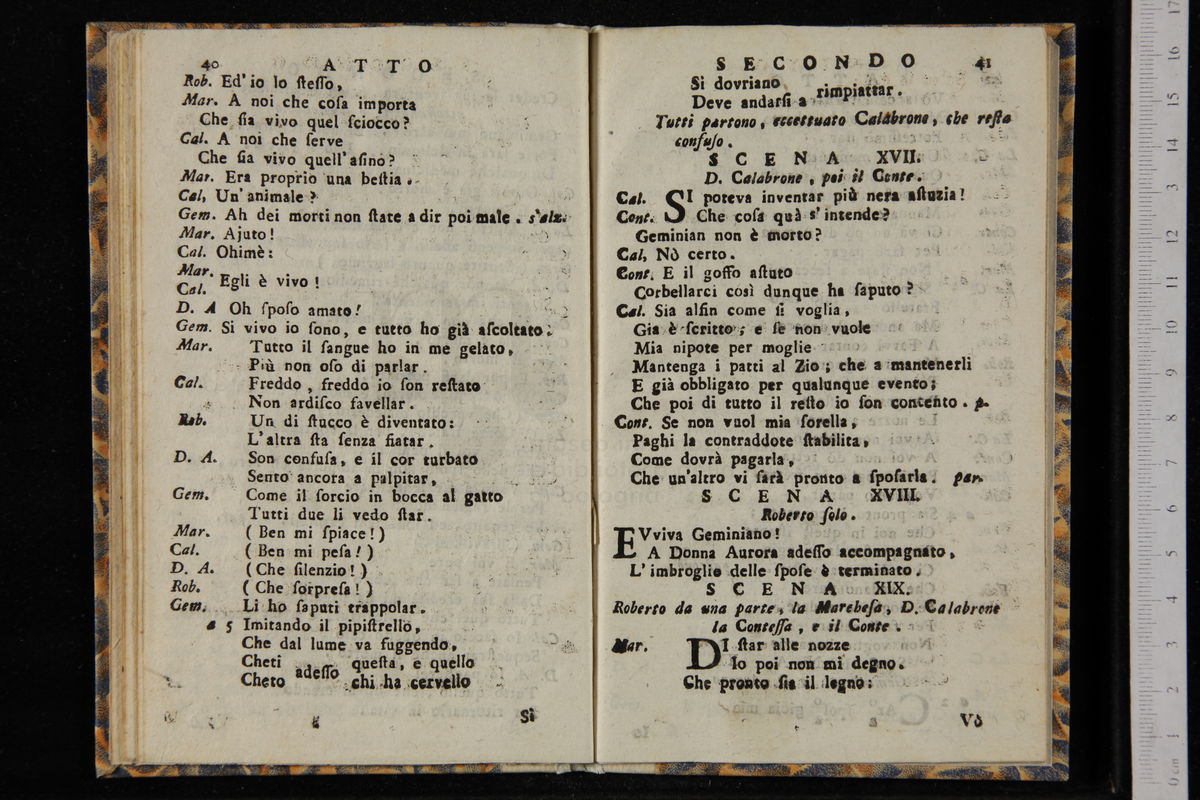 40 ATTO
Rob. Ed' io lo ſteſſo,
Mar. A noi che coſa importa
Che ſia vivo quel ſciocco?
Cal. A noi che ſerve
Che ſia vivo quell' aſino?
Mar. Era proprio una beſtia.
Cal, Un' animale?
Gem. Ah dei morti non ſtate a dir poi male. s'alz.
Mar. Ajuto!
Cal. Ohimè:
Mar.
Cal. Egli è vivo!
D. A Oh ſpoſo amato!
Gem. Si vivo io ſono, e tutto ho già aſcoltato.
Mar. Tutto il ſangue ho in me gelato,
Più non oſo di parlar.
Cal. Freddo, freddo io ſon reſtato
Non ardiſco favellar.
Rob. Un di ſtucco è diventato:
L' altra ſta ſenza fiatar.
D. A. Son confuſa, e il cor turbato
Sento ancora a palpitar,
Gem. Come il ſorcio in bocca al gatto
Tutti due li vedo ſtar.
Mar. (Ben mi ſpiace!)
Cal. (Ben mi peſa!)
D. A. (Che ſilenzio!)
Rob. (Che ſorpreſa!)
Gem. Li ho ſaputi trappolar.
a 5 Imitando il pipiſtrello,
Che dal lume va fuggendo,
Cheti adeſſo queſta, e quello
Cheto chi ha cervello
Sì
SECONDO 41
Sì dovriano
Deve andarſi a rimpiattar.
Tutti partono, eccettuato Calabrone, che reſta
confuſo.
SCENA XVII.
D. Calabrone, poi il Conte.
Cal. SI poteva inventar più nera aſtuzia!
Cont. Che coſa quà s' intende?
Geminian non è morto?
Cal, Nò certo.
Cont. E il goffo aſtuto
Corbellarci così dunque ha ſaputo?
Cal. Sia alfin come ſi voglia,
Gia è ſcritto; e ſe non vuole
Mia nipote per moglie
Mantenga i patti al Zio; che a mantenerli
E già obbligato per qualunque evento;
Che poi di tutto il reſto io ſon contento. p.
Cont. Se non vuol mia ſorella,
Paghi la contraddote ſtabilita,
Come dovrà pagarla,
Che un' altro vi ſarà pronto a ſpoſarla. par.
SCENA XVIII.
Roberto ſolo.
EVviva Geminiano!
A Donna Aurora adeſſo accompagnato,
L' imbroglio delle ſpoſe è terminato.
SCENA XIX.
Roberto da una parte, la Marcheſa, D. Calabrone
la Conteſſa, e il Conte.
Mar. DI ſtar alle nozze
Io poi non mi degno.
Che pronto ſia il legno:
Vò